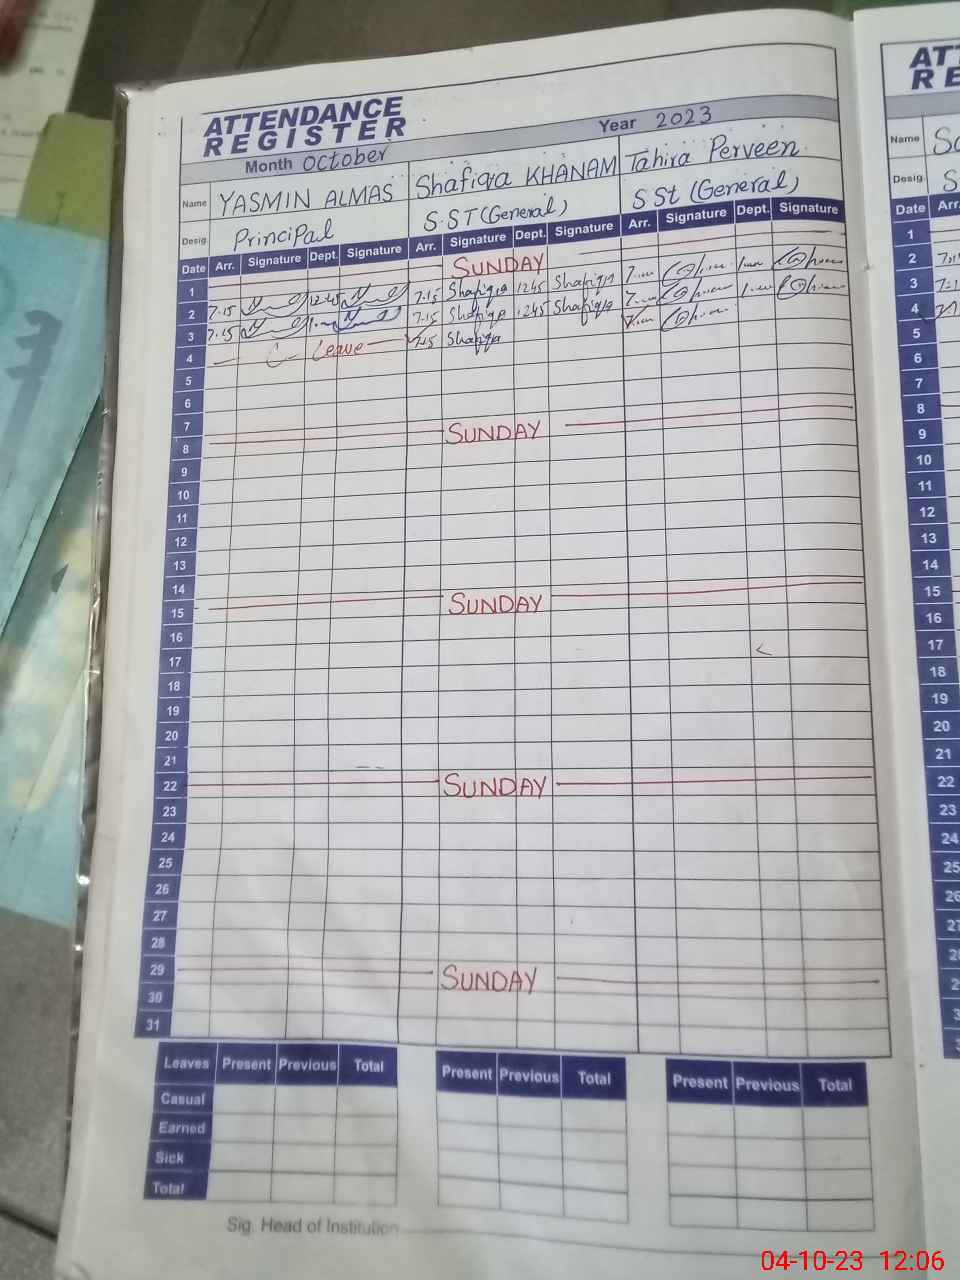 ATTENDANCE
REGISTER
Month October Year 2023
Name YASMIN ALMAS Shafiqa KHANAM Tahira Perveen
Desig. Principal S.ST (General) S St (General)
Date Arr. Signature Dept. Signature Arr. Signature Dept. Signature Arr. Signature Dept. Signature
1 SUNDAY
2 7.15 12.45 7.15 Shafiqa 1245 Shafiqa
3 7.15 7.15 Shafiqa 1245 Shafiqa
4 Leave 7.15 Shafiqa
5
6
7
8 SUNDAY
9
10
11
12
13
14
15 SUNDAY
16
17
18
19
20
21
22 SUNDAY
23
24
25
26
27
28
29 SUNDAY
30
31
Leaves Present Previous Total Present Previous Total Present Previous Total
Casual
Earned
Sick
Total
Sig. Head of Institution
Name
Desig.
Date Arr.
1
2
3
4
5
6
7
8
9
10
11
12
13
14
15
16
17
18
19
20
21
22
23
24
25
26
04-10-23 12:06